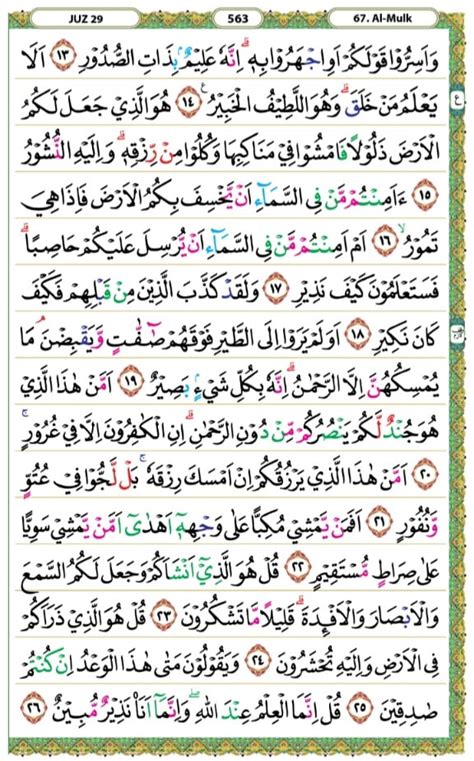 JUZ 29 563 67. Al-Mulk
وَاَسِرُّوْا قَوْلَكُمْ اَوِاجْهَرُوْا بِهٖۗ اِنَّهٗ عَلِيْمٌۢ بِذَاتِ الصُّدُوْرِ ۝١٣ اَلَا
يَعْلَمُ مَنْ خَلَقَۗ وَهُوَ اللَّطِيْفُ الْخَبِيْرُ ۝١٤ هُوَ الَّذِيْ جَعَلَ لَكُمُ
الْاَرْضَ ذَلُوْلًا فَامْشُوْا فِيْ مَنَاكِبِهَا وَكُلُوْا مِنْ رِّزْقِهٖۗ وَاِلَيْهِ النُّشُوْرُ
۝١٥ ءَاَمِنْتُمْ مَّنْ فِى السَّمَاۤءِ اَنْ يَّخْسِفَ بِكُمُ الْاَرْضَ فَاِذَا هِيَ
تَمُوْرُۙ ۝١٦ اَمْ اَمِنْتُمْ مَّنْ فِى السَّمَاۤءِ اَنْ يُّرْسِلَ عَلَيْكُمْ حَاصِبًاۗ
فَسَتَعْلَمُوْنَ كَيْفَ نَذِيْرِ ۝١٧ وَلَقَدْ كَذَّبَ الَّذِيْنَ مِنْ قَبْلِهِمْ فَكَيْفَ
كَانَ نَكِيْرِ ۝١٨ اَوَلَمْ يَرَوْا اِلَى الطَّيْرِ فَوْقَهُمْ صٰۤفّٰتٍ وَّيَقْبِضْنَۘ مَا
يُمْسِكُهُنَّ اِلَّا الرَّحْمٰنُۗ اِنَّهٗ بِكُلِّ شَيْءٍۢ بَصِيْرٌ ۝١٩ اَمَّنْ هٰذَا الَّذِيْ
هُوَ جُنْدٌ لَّكُمْ يَنْصُرُكُمْ مِّنْ دُوْنِ الرَّحْمٰنِۗ اِنِ الْكٰفِرُوْنَ اِلَّا فِيْ غُرُوْرٍۚ
۝٢٠ اَمَّنْ هٰذَا الَّذِيْ يَرْزُقُكُمْ اِنْ اَمْسَكَ رِزْقَهٗۚ بَلْ لَّجُّوْا فِيْ عُتُوٍّ
وَّنُفُوْرٍ ۝٢١ اَفَمَنْ يَّمْشِيْ مُكِبًّا عَلٰى وَجْهِهٖٓ اَهْدٰىٓ اَمَّنْ يَّمْشِيْ سَوِيًّا
عَلٰى صِرَاطٍ مُّسْتَقِيْمٍ ۝٢٢ قُلْ هُوَ الَّذِيْٓ اَنْشَاَكُمْ وَجَعَلَ لَكُمُ السَّمْعَ
وَالْاَبْصَارَ وَالْاَفْـِٕدَةَۗ قَلِيْلًا مَّا تَشْكُرُوْنَ ۝٢٣ قُلْ هُوَ الَّذِيْ ذَرَاَكُمْ
فِى الْاَرْضِ وَاِلَيْهِ تُحْشَرُوْنَ ۝٢٤ وَيَقُوْلُوْنَ مَتٰى هٰذَا الْوَعْدُ اِنْ كُنْتُمْ
صٰدِقِيْنَ ۝٢٥ قُلْ اِنَّمَا الْعِلْمُ عِنْدَ اللّٰهِۖ وَاِنَّمَآ اَنَا۠ نَذِيْرٌ مُّبِيْنٌ ۝٢٦